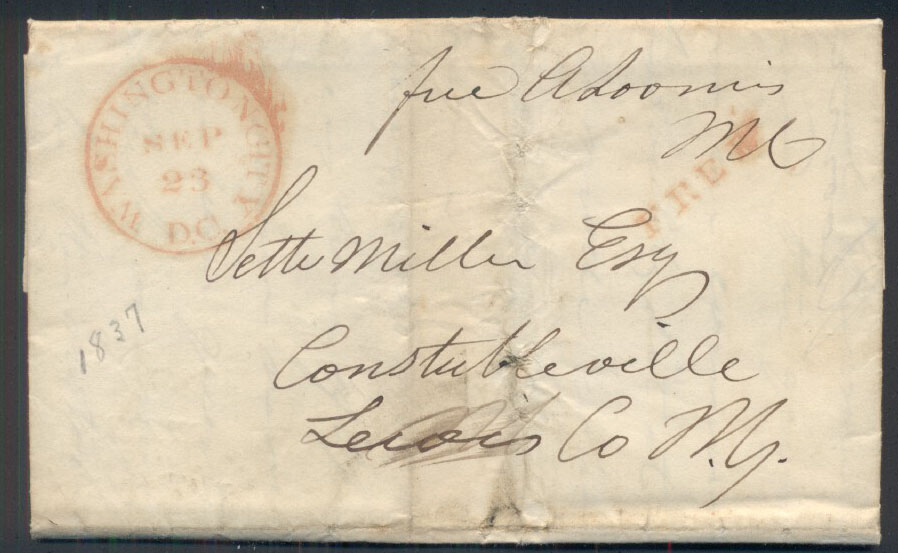 WASHINGTON CITY
SEP
23
D.C.
free A Loomis
MC
FREE
Seth Miller Esq
Constableville
Lewis Co N.Y.
1837